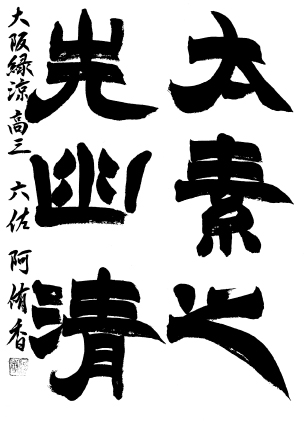 太素之
先幽清
大阪緑涼高三 六佐 阿侑香